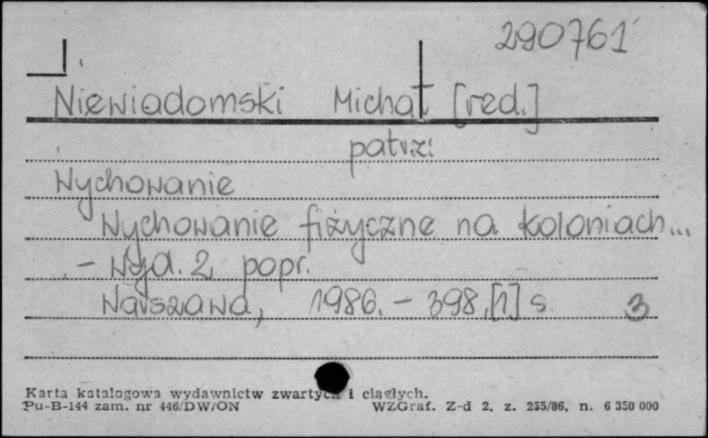 290761
Niewiadomski Michał [red.]
patrz:
Wychowanie
Wychowanie fizyczne na koloniach...
- Wyd. 2 popr.
Warszawa, 1986. - 398,[1] s. 3
Karta katalogowa wydawnictw zwartych i ciągłych.
Pu-B-144 zam. nr 446/DW/ON WZGraf. Z-d 2, z. 255/86, n. 6 350 000